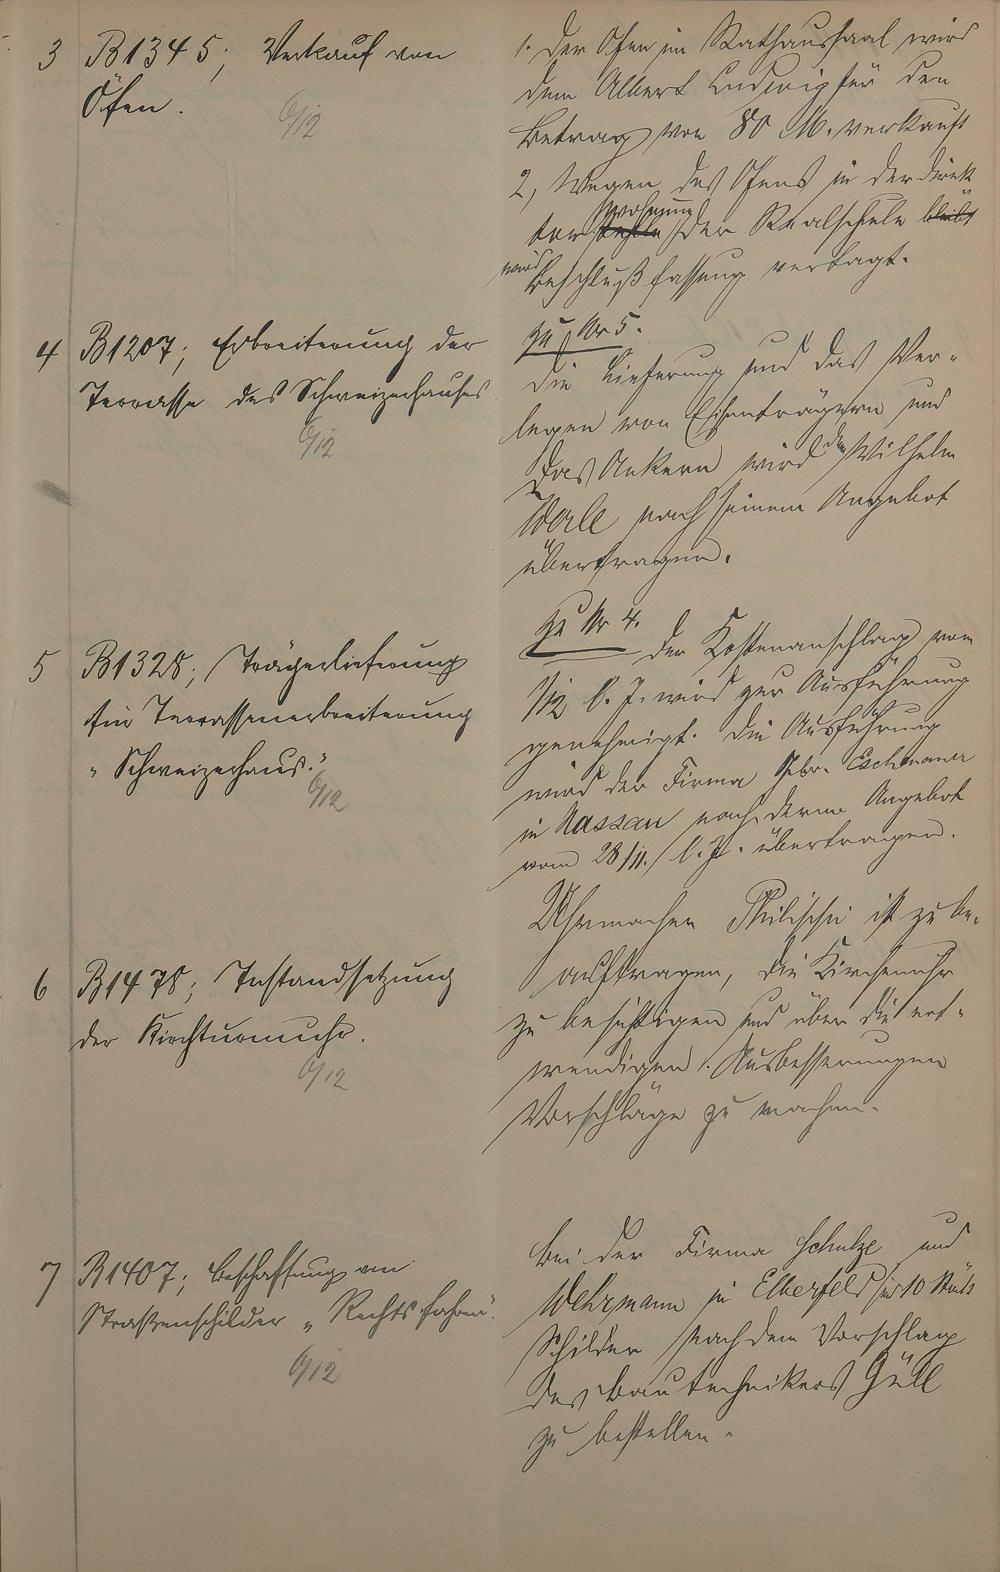 3 B1345; Verkauf von
Öfen.
6/12
1. Der Ofen im Rathaussaal wird
dem Albert Ludwig für den
Betrag von 80 M. verkauft
2, Wegen des Ofens in der Direk
torwohnung der Realschule bleibt
wird Beschlußfassung vertagt.
4 B1207; Erbreiterung der
Terrasse des Schweizerhauses
6/12
Zu Nr 5.
Die Lieferung und das Ver-
legen von Eisenträgern und
das Ankern wird dem Wilhelm
nach seinem Angebot
übertragen.
5 B1328; Trägerlieferung
für Terrassenerbreiterung
"Schweizerhaus."
6/12
Zu Nr 4.
Der Kostenanschlag vom
1/12 l. J. wird zur Ausführung
genehmigt. Die Ausführung
wird der Firma Gebr. Eschmann
in Nassau nach deren Angebot
vom 28/11. l. J. übertragen.
6 B1478; Instandsetzung
der Kirchturmuhr.
6/12
Uhrmacher Philippi ist zu be-
auftragen, die Kirchenuhr
zu besichtigen und über die not-
wendigen Ausbesserungen
Vorschläge zu machen.
7 B1407; Beschaffung von
Straßenschilder "Rechts fahren".
6/12
Bei der Firma Schulze und
Wehrmann in Elberfeld sind 10 Stück
Schilder nach dem Vorschlag
des Bautechnikers Güll
zu bestellen.